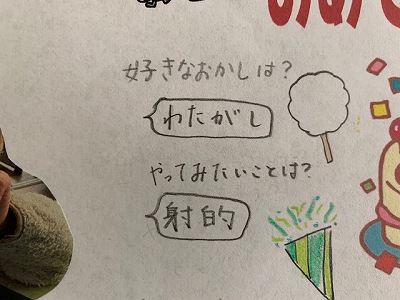 好きなおかしは?
わたがし
やってみたいことは?
射的